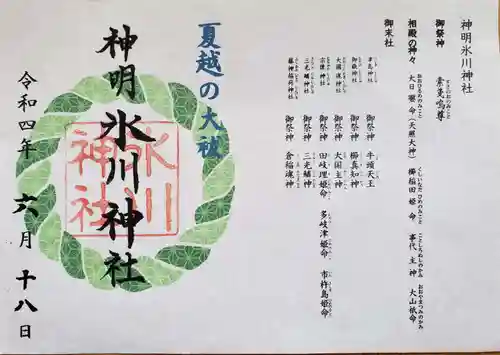 神明氷川神社
御祭神
素戔嗚尊
相殿の神々
大日孁命(天照大神) 櫛稲田姫命 事代主神 大山祇命
御末社
神社 御祭神 牛頭天王
御嶽神社 御祭神 櫛真知神
神社 御祭神 大国主神
宗像神社 御祭神 田岐理姫命 多岐津姫命 市杵島姫命
三光 神社 御祭神 三光 神
稲荷神社 御祭神 倉稲魂神
夏越の大祓
神明氷川神社
氷川
神社
令和四年 六月 十八日